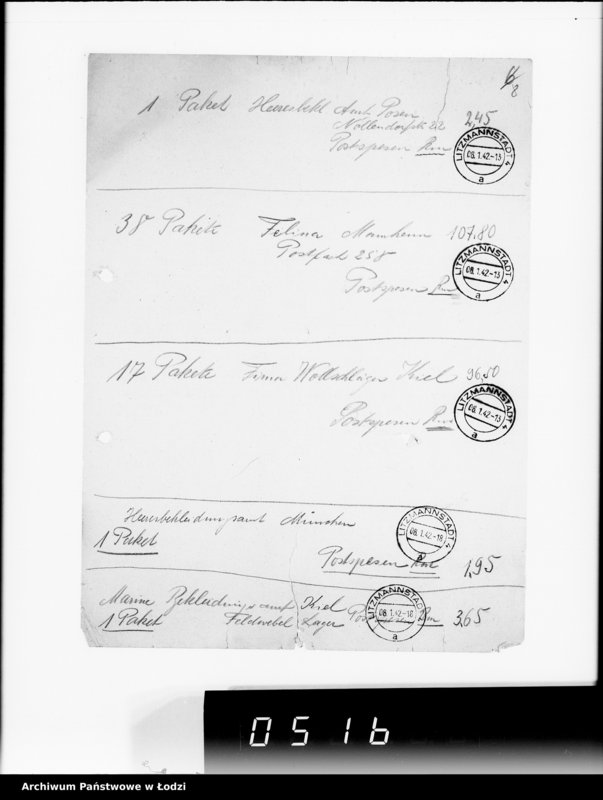 8
1 Paket Heeresbekl Amt Posen
Nollendorfstr 22
Postspesen Rm 2,45
LITZMANNSTADT 4
08.1.42-13
a
38 Pakete Felina Mannheim 107.80
Postfach 258
Postspesen Rm
LITZMANNSTADT 4
08.1.42-13
a
17 Pakete Firma Wollschläger Kiel 96,50
Postspesen Rm
LITZMANNSTADT 4
08.1.42-13
a
Heeresbekleidungsamt München
1 Paket
Postspesen 1,95
LITZMANNSTADT 4
08.1.42-18
a
Marine Bekleidungsamt Kiel
1 Paket Feldwebel Lager Rm 3,65
LITZMANNSTADT 4
08.1.42-18
a
0516
Archiwum Państwowe w Łodzi